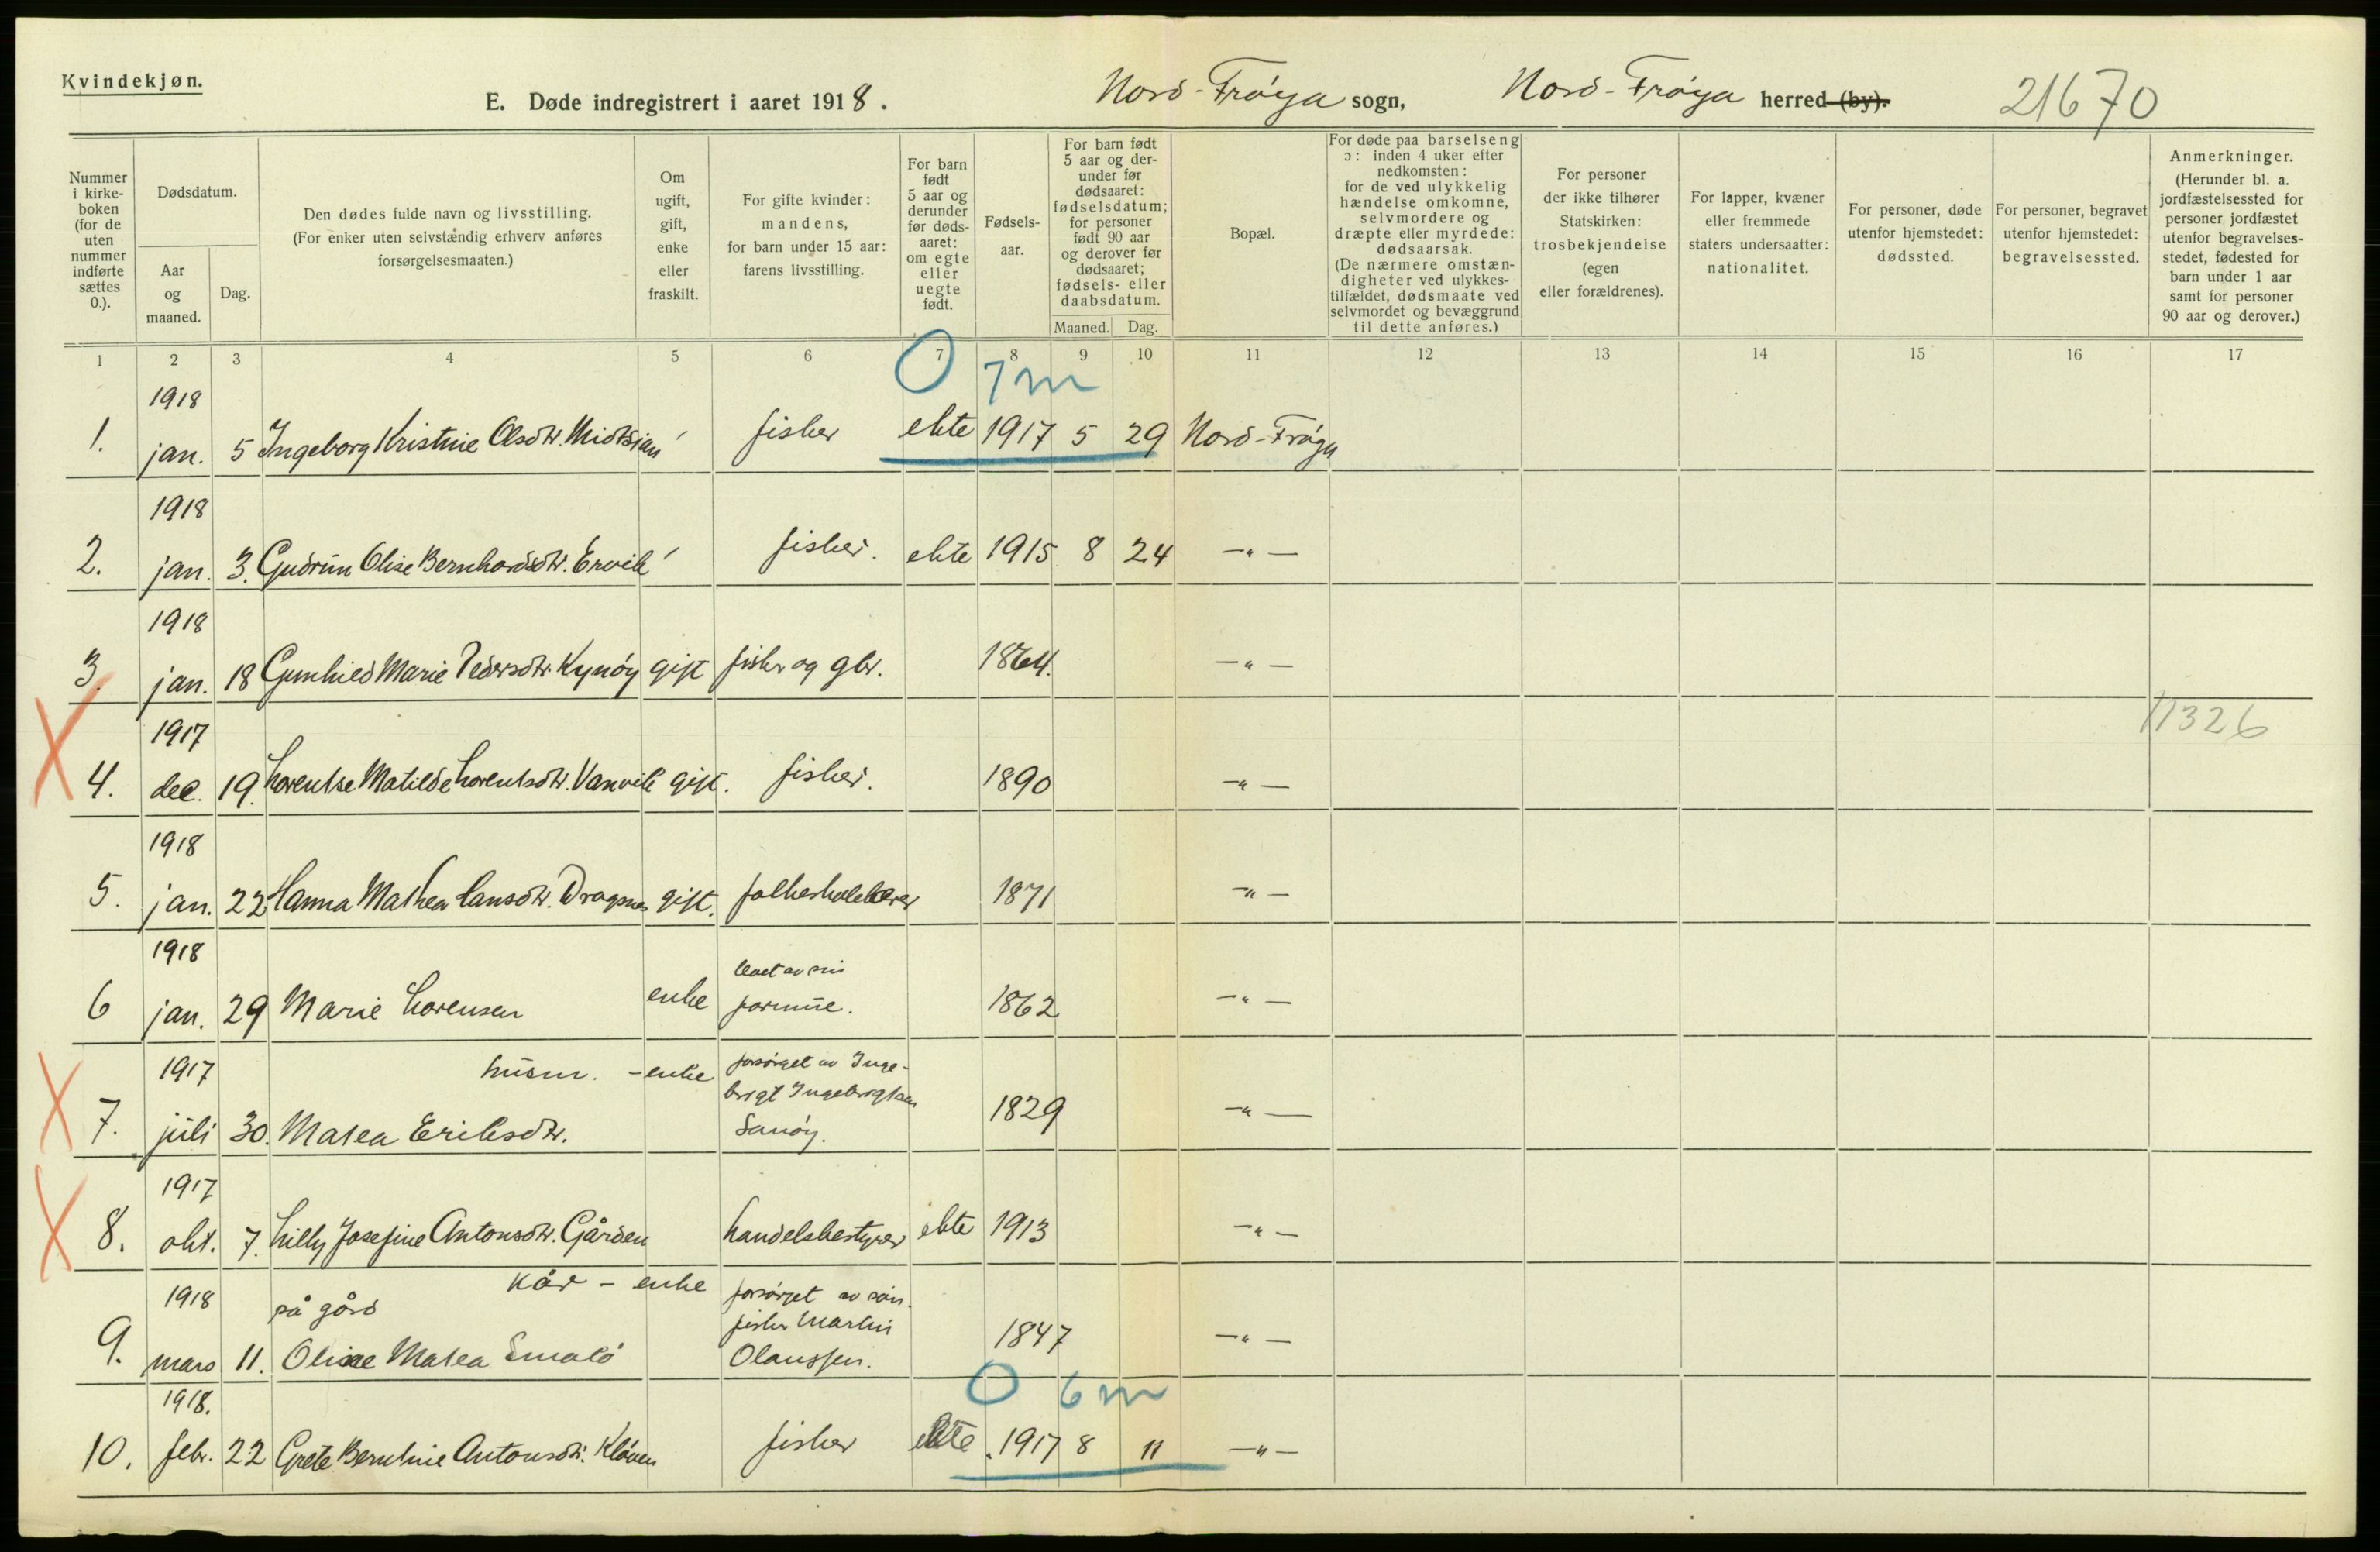 Kvindekjøn.
E. Døde indregistrert i aaret 1918.
Nord-Frøya sogn,
Nord-Frøya herred (by).
21670
Nummer i kirke-boken (for de uten nummer indførte sættes 0.).
Dødsdatum.
Aar og maaned.
Dag.
Den dødes fulde navn og livsstilling.
(For enker uten selvstændig erhverv anføres forsørgelsesmaaten.)
Om ugift, gift, enke eller fraskilt.
For gifte kvinder: mandens, for barn under 15 aar: farens livsstilling.
For barn født 5 aar og derunder før døds-aaret: om egte eller uegte født.
Fødsels-aar.
For barn født 5 aar og der-under før dødsaaret: fødselsdatum; for personer født 90 aar og derover før dødsaaret; fødsels- eller daabsdatum.
Maaned.
Dag.
Bopæl.
For døde paa barselseng ɔ: inden 4 uker efter nedkomsten: for de ved ulykkelig hændelse omkomne, selvmordere og dræpte eller myrdede: dødsaarsak.
(De nærmere omstæn-digheter ved ulykkes-tilfældet, dødsmaate ved selvmordet og bevæggrund til dette anføres.)
For personer der ikke tilhører Statskirken: trosbekjendelse (egen eller forældrenes).
For lapper, kvæner eller fremmede staters undersaatter: nationalitet.
For personer, døde utenfor hjemstedet: dødssted.
For personer, begravet utenfor hjemstedet: begravelsessted.
Anmerkninger.
(Herunder bl. a. jordfæstelsessted for personer jordfæstet utenfor begravelses-stedet, fødested for barn under 1 aar samt for personer 90 aar og derover.)
1 2 3 4 5 6 7 8 9 10 11 12 13 14 15 16 17
0 7 m
1918
1. jan. 5 Ingeborg Kristine Olsdtr. fisker ekte 1917 5 29 Nord-Frøya
1918
2. jan. 3. Gudrun Olise Bernhardsdtr. Ervik fisker. ekte 1915 8 24 —"—
1918
3. jan. 18 Gunhild Marie Pedersdtr. Kynøy gift fisker og gbr. 1864. —"—
11326
1917
4. dec. 19. Lorentse Matilde Lorentsdtr. Vanvik gift. fisker. 1890 —"—
1918
5. jan. 22 Hanna Mathea Hansdtr. Dragsnes gift. folkeskolelærer 1871 —"—
1918
levet av sin
6 jan. 29 Marie Lorensen enke formue. 1862 —"—
1917 husm. - enke forsørget av Inge-
brigt Ingebrigtsen
7. juli 30. Matea Eriksdtr. Sanøy. 1829 —"—
1917
8. okt. 7. Lilly Josefine Antonsdtr. Gården handelsbestyrer ekte 1913 —"—
kår - enke forsørget av søn.
1918 på gård fisker Martin
9. mars 11. Oline Matea Småø Olaussen. 1847 —"—
0 6 m
1918.
10. febr. 22 Grete Berntine Antonsdtr. Kløven fisker ekte 1917 8 11 —"—